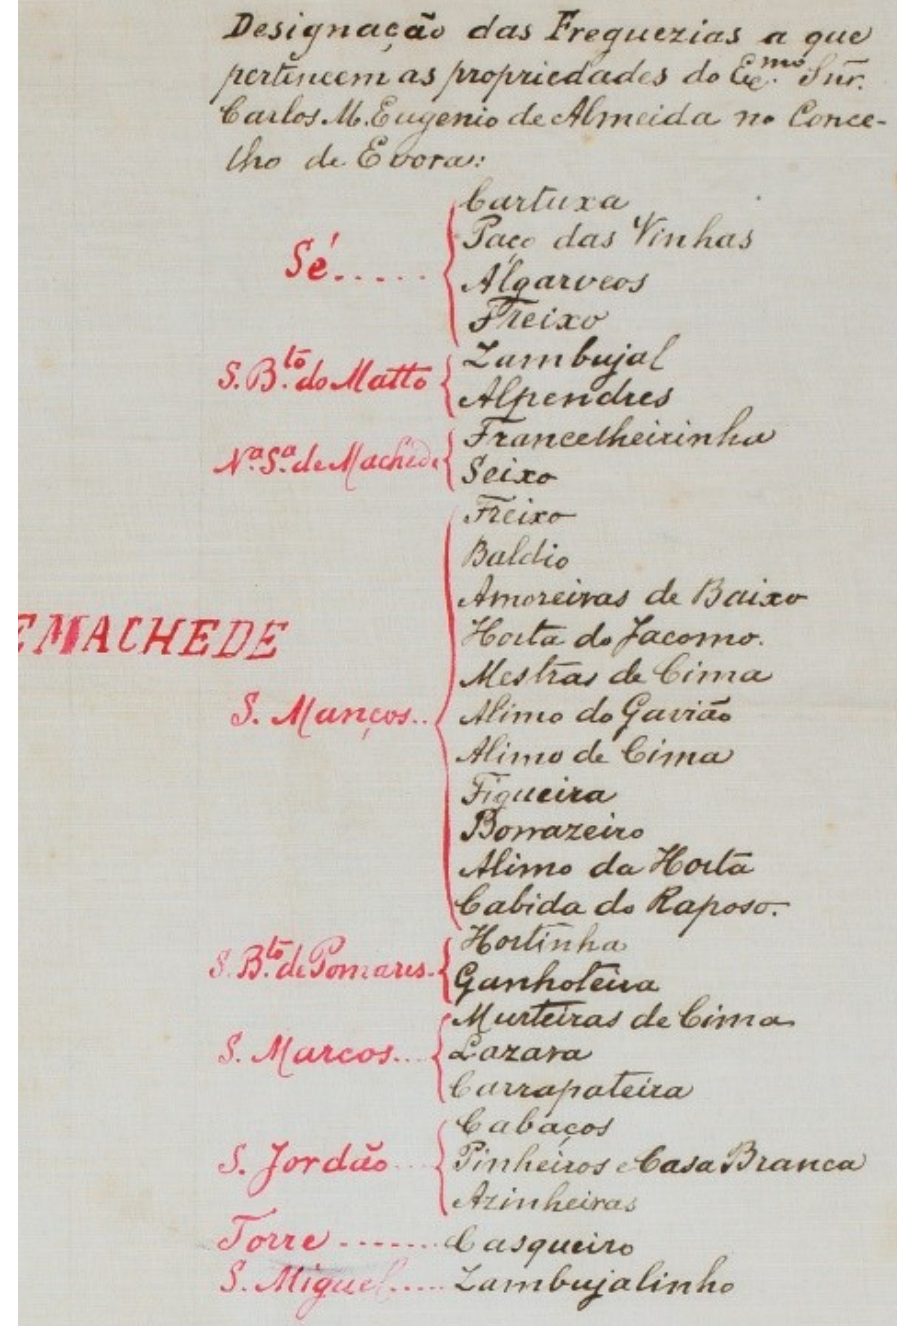 Designação das Freguezias a que
pertencem as propriedades do Ex.mo Snr.
Carlos M. Eugenio de Almeida no Conce-
lho de Evora:
Sé.....
Cartuxa
Paço das Vinhas
Algarveos
Freixo
S. B.to do Matto
Zambujal
Alpendres
N.a S.a de Machede
Francelheirinha
Seixo
EMACHEDE
S. Manços..
Freixo
Baldio
Amoreiras de Baixo
Horta do Jacomo.
Mestras de Cima
Alimo do Gavião
Alimo de Cima
Figueira
Borrazeiro
Alimo da Horta
Cabida do Raposo.
S. B.to de Pomares.
Hortinha
Ganhoteira
S. Marcos...
Murteiras de Cima
Lazara
Carrapateira
S. Jordão...
Cabaços
Pinheiros e Casa Branca
Azinheiras
Torre ------ Casqueiro
S. Miguel..... Zambujalinho